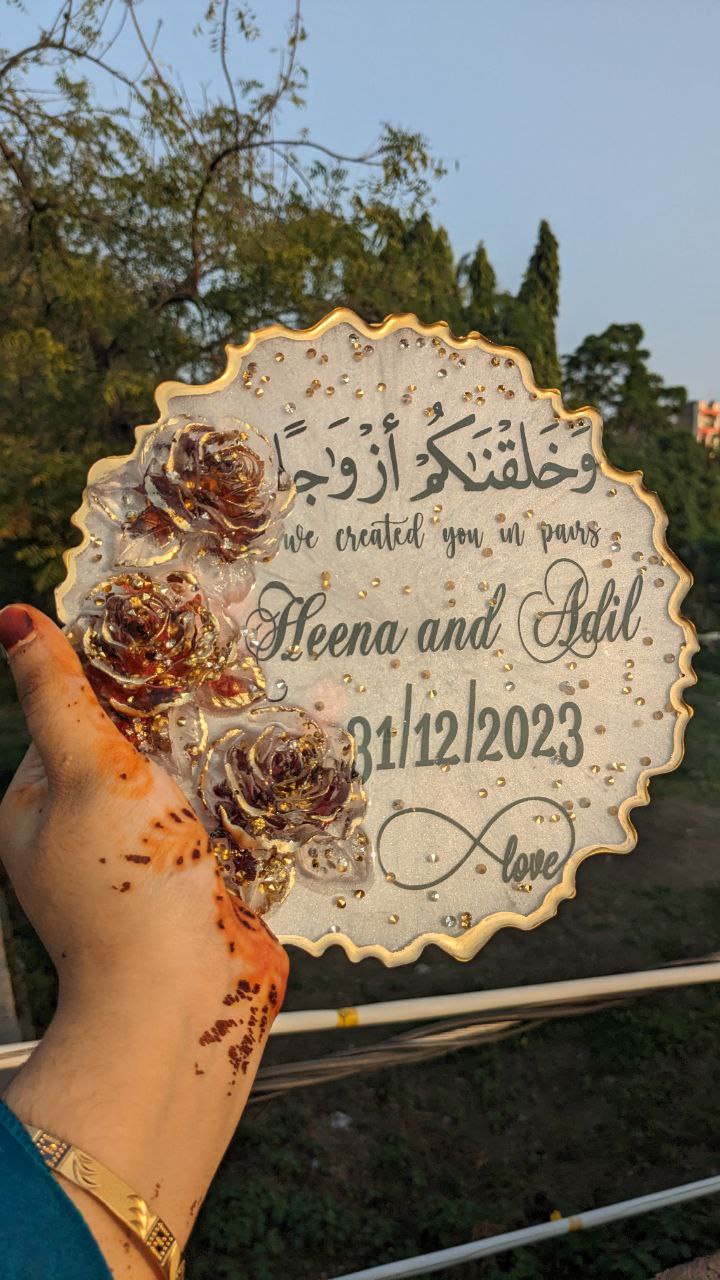 وَخَلَقْنَاكُمْ أَزْوَاجًا
we created you in pairs
Heena and Adil
31/12/2023
love